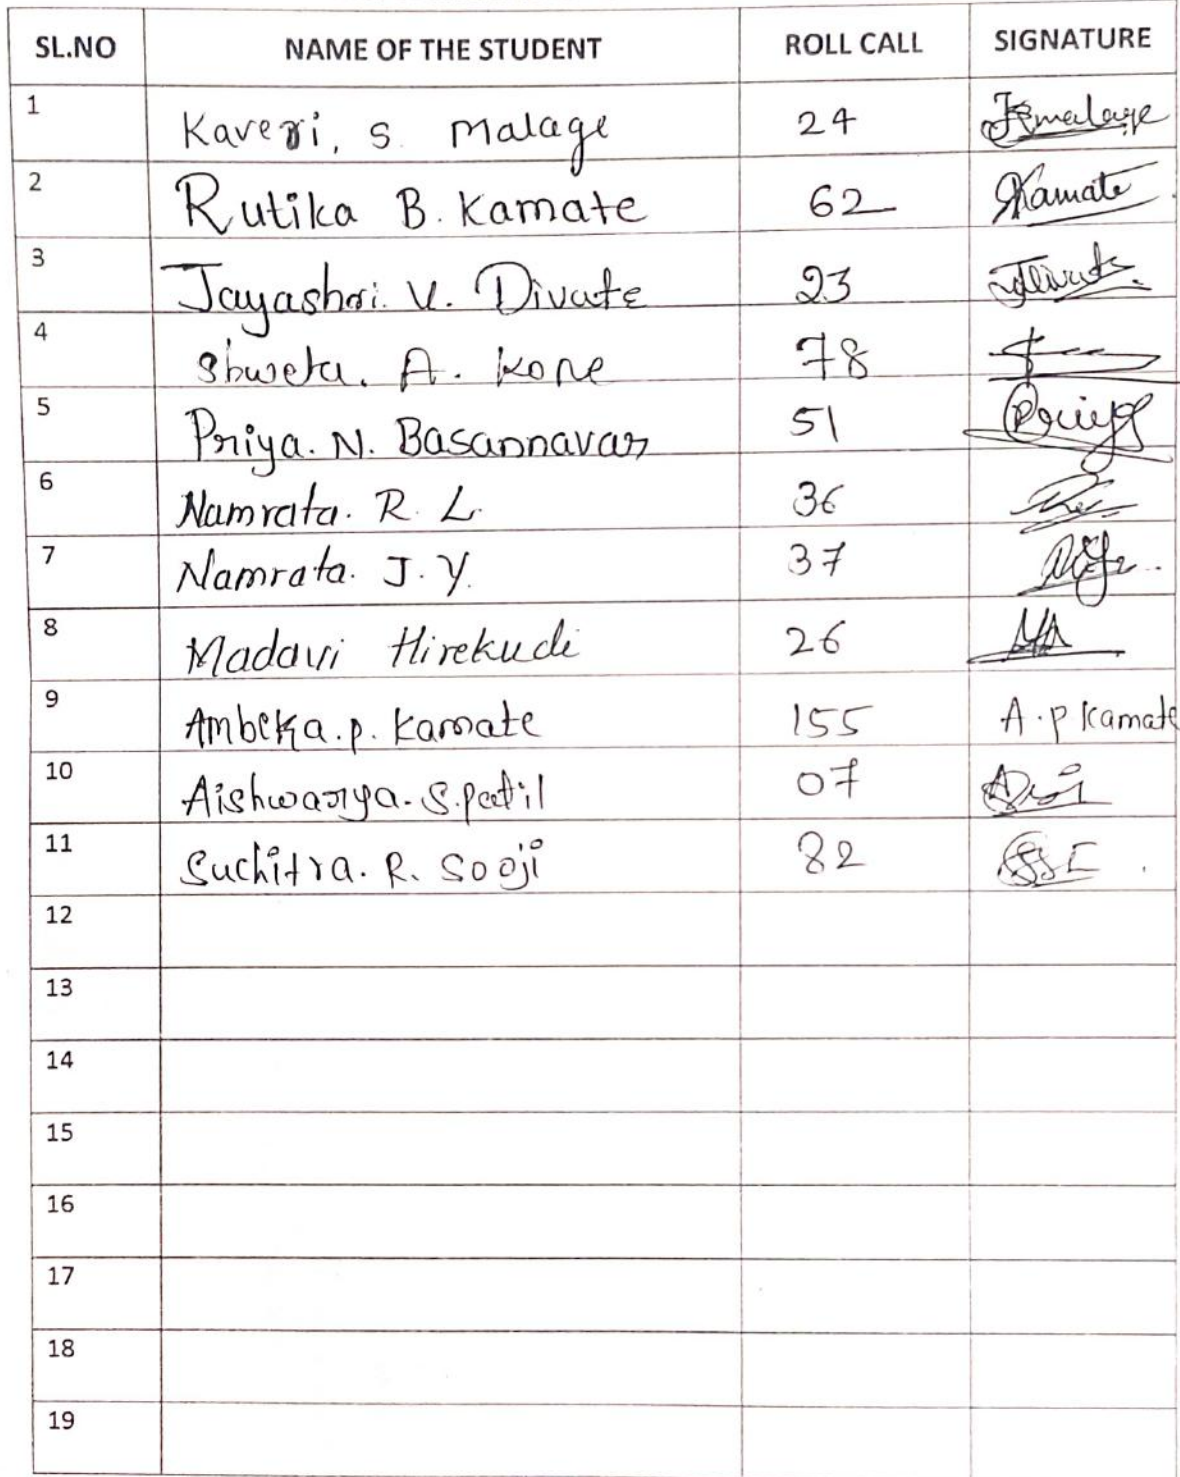 SL.NO NAME OF THE STUDENT ROLL CALL SIGNATURE
1 Kaveri, S. Malage 24 Kmalage
2 Rutika B. Kamate 62 Kamate
3 Jayashri. V. Divate 23
4 Shweta. A. Kone 78
5 Priya. N. Basannavar 51 Priya
6 Namrata. R. L. 36
7 Namrata. J. Y. 37
8 Madavi Hirekudi 26
9 Ambika. p. Kamate 155 A.p Kamate
10 Aishwarya. S. patil 07
11 Suchitra. R. Sooji 82
12
13
14
15
16
17
18
19